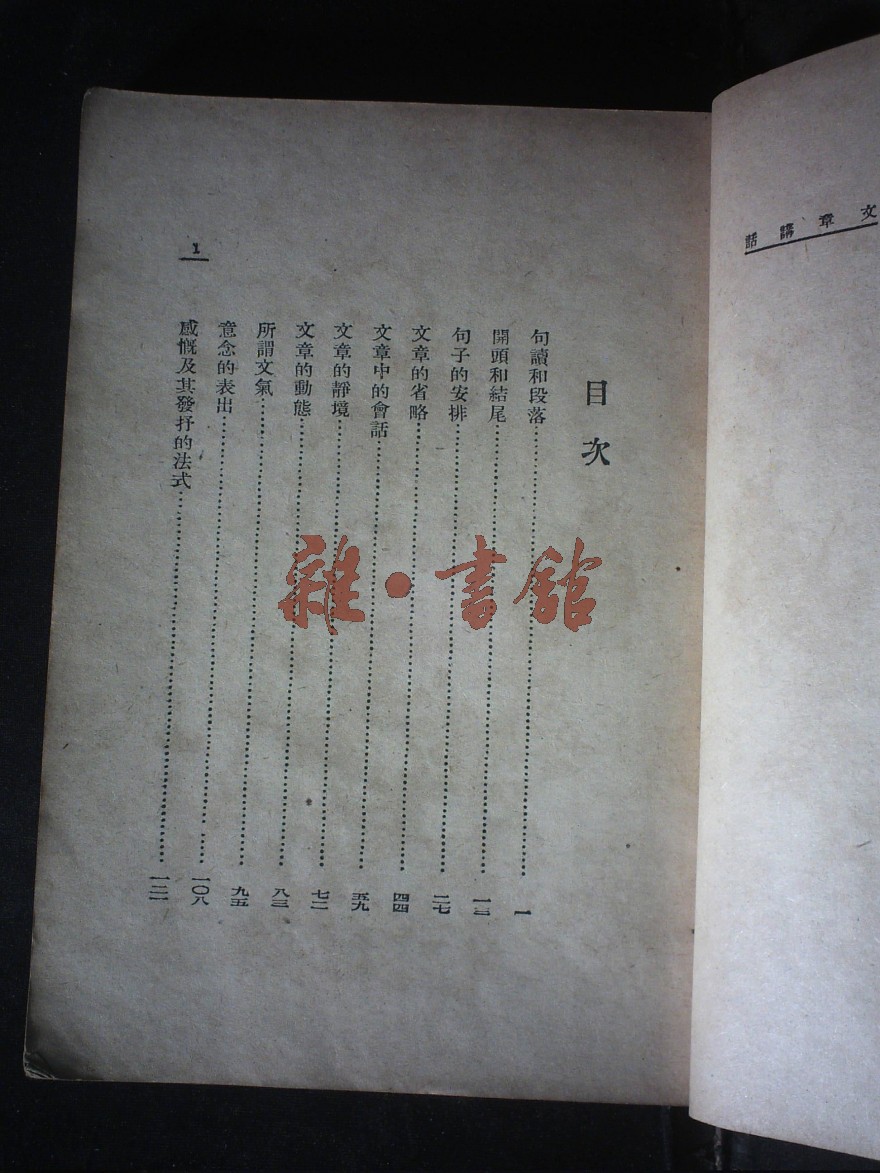 文章講話
目次
句讀和段落……一
開頭和結尾……一三
句子的安排……二七
文章的省略……四四
文章中的會話……五九
文章的靜境……七二
文章的動態……八三
所謂文氣……九五
意念的表出……一〇八
感慨及其發抒的法式……一二一
1
雜·書館